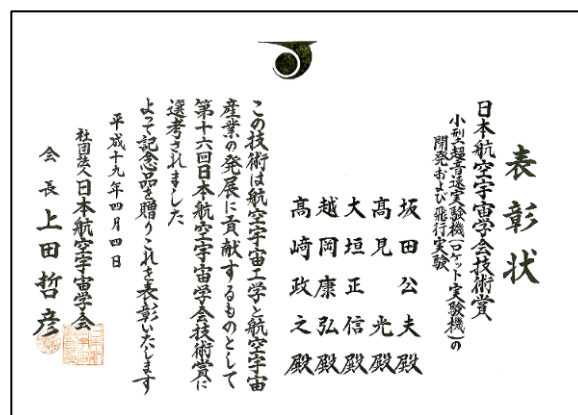 表彰状
日本航空宇宙学会技術賞
小型超音速実験機(ロケット実験機)の
開発および飛行実験
坂田公夫殿
髙見光殿
大垣正信殿
越岡康弘殿
髙崎政之殿
この技術は航空宇宙工学と航空宇宙
産業の発展に貢献するものとして
第十六回日本航空宇宙学会技術賞に
選考されました
よって記念品を贈りこれを表彰いたします
平成十九年四月四日
社団法人日本航空宇宙学会
会長上田哲彦